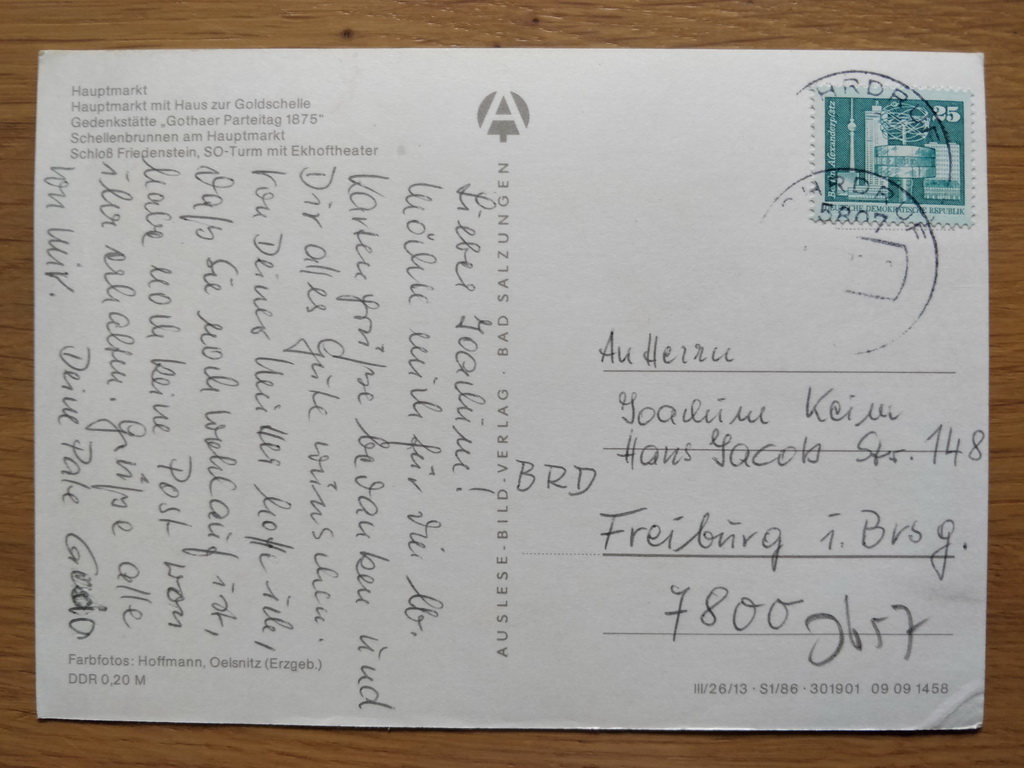 Hauptmarkt
Hauptmarkt mit Haus zur Goldschelle
Gedenkstätte „Gothaer Parteitag 1875"
Schellenbrunnen am Hauptmarkt
Schloß Friedenstein, SO-Turm mit Ekhoftheater
Lieber Joachim!
Möchte mich für die lb.
Kartengrüße bedanken und
Dir alles Gute wünschen.
Von Deiner Mutter hoffe ich,
daß Sie noch wohlauf ist,
habe noch keine Post von
ihr erhalten. Grüße alle
von mir. Deine Pate
Farbfotos: Hoffmann, Oelsnitz (Erzgeb.)
DDR 0,20 M
AUSLESE-BILD-VERLAG · BAD SALZUNGEN
25
Berlin, Alexanderplatz
DEMOKRATISCHE REPUBLIK
5807
An Herrn
Joachim Keim
Hans Jacob Str. 148
BRD
Freiburg i. Brsg.
7800
III/26/13 · S1/86 · 301901 09 09 1458